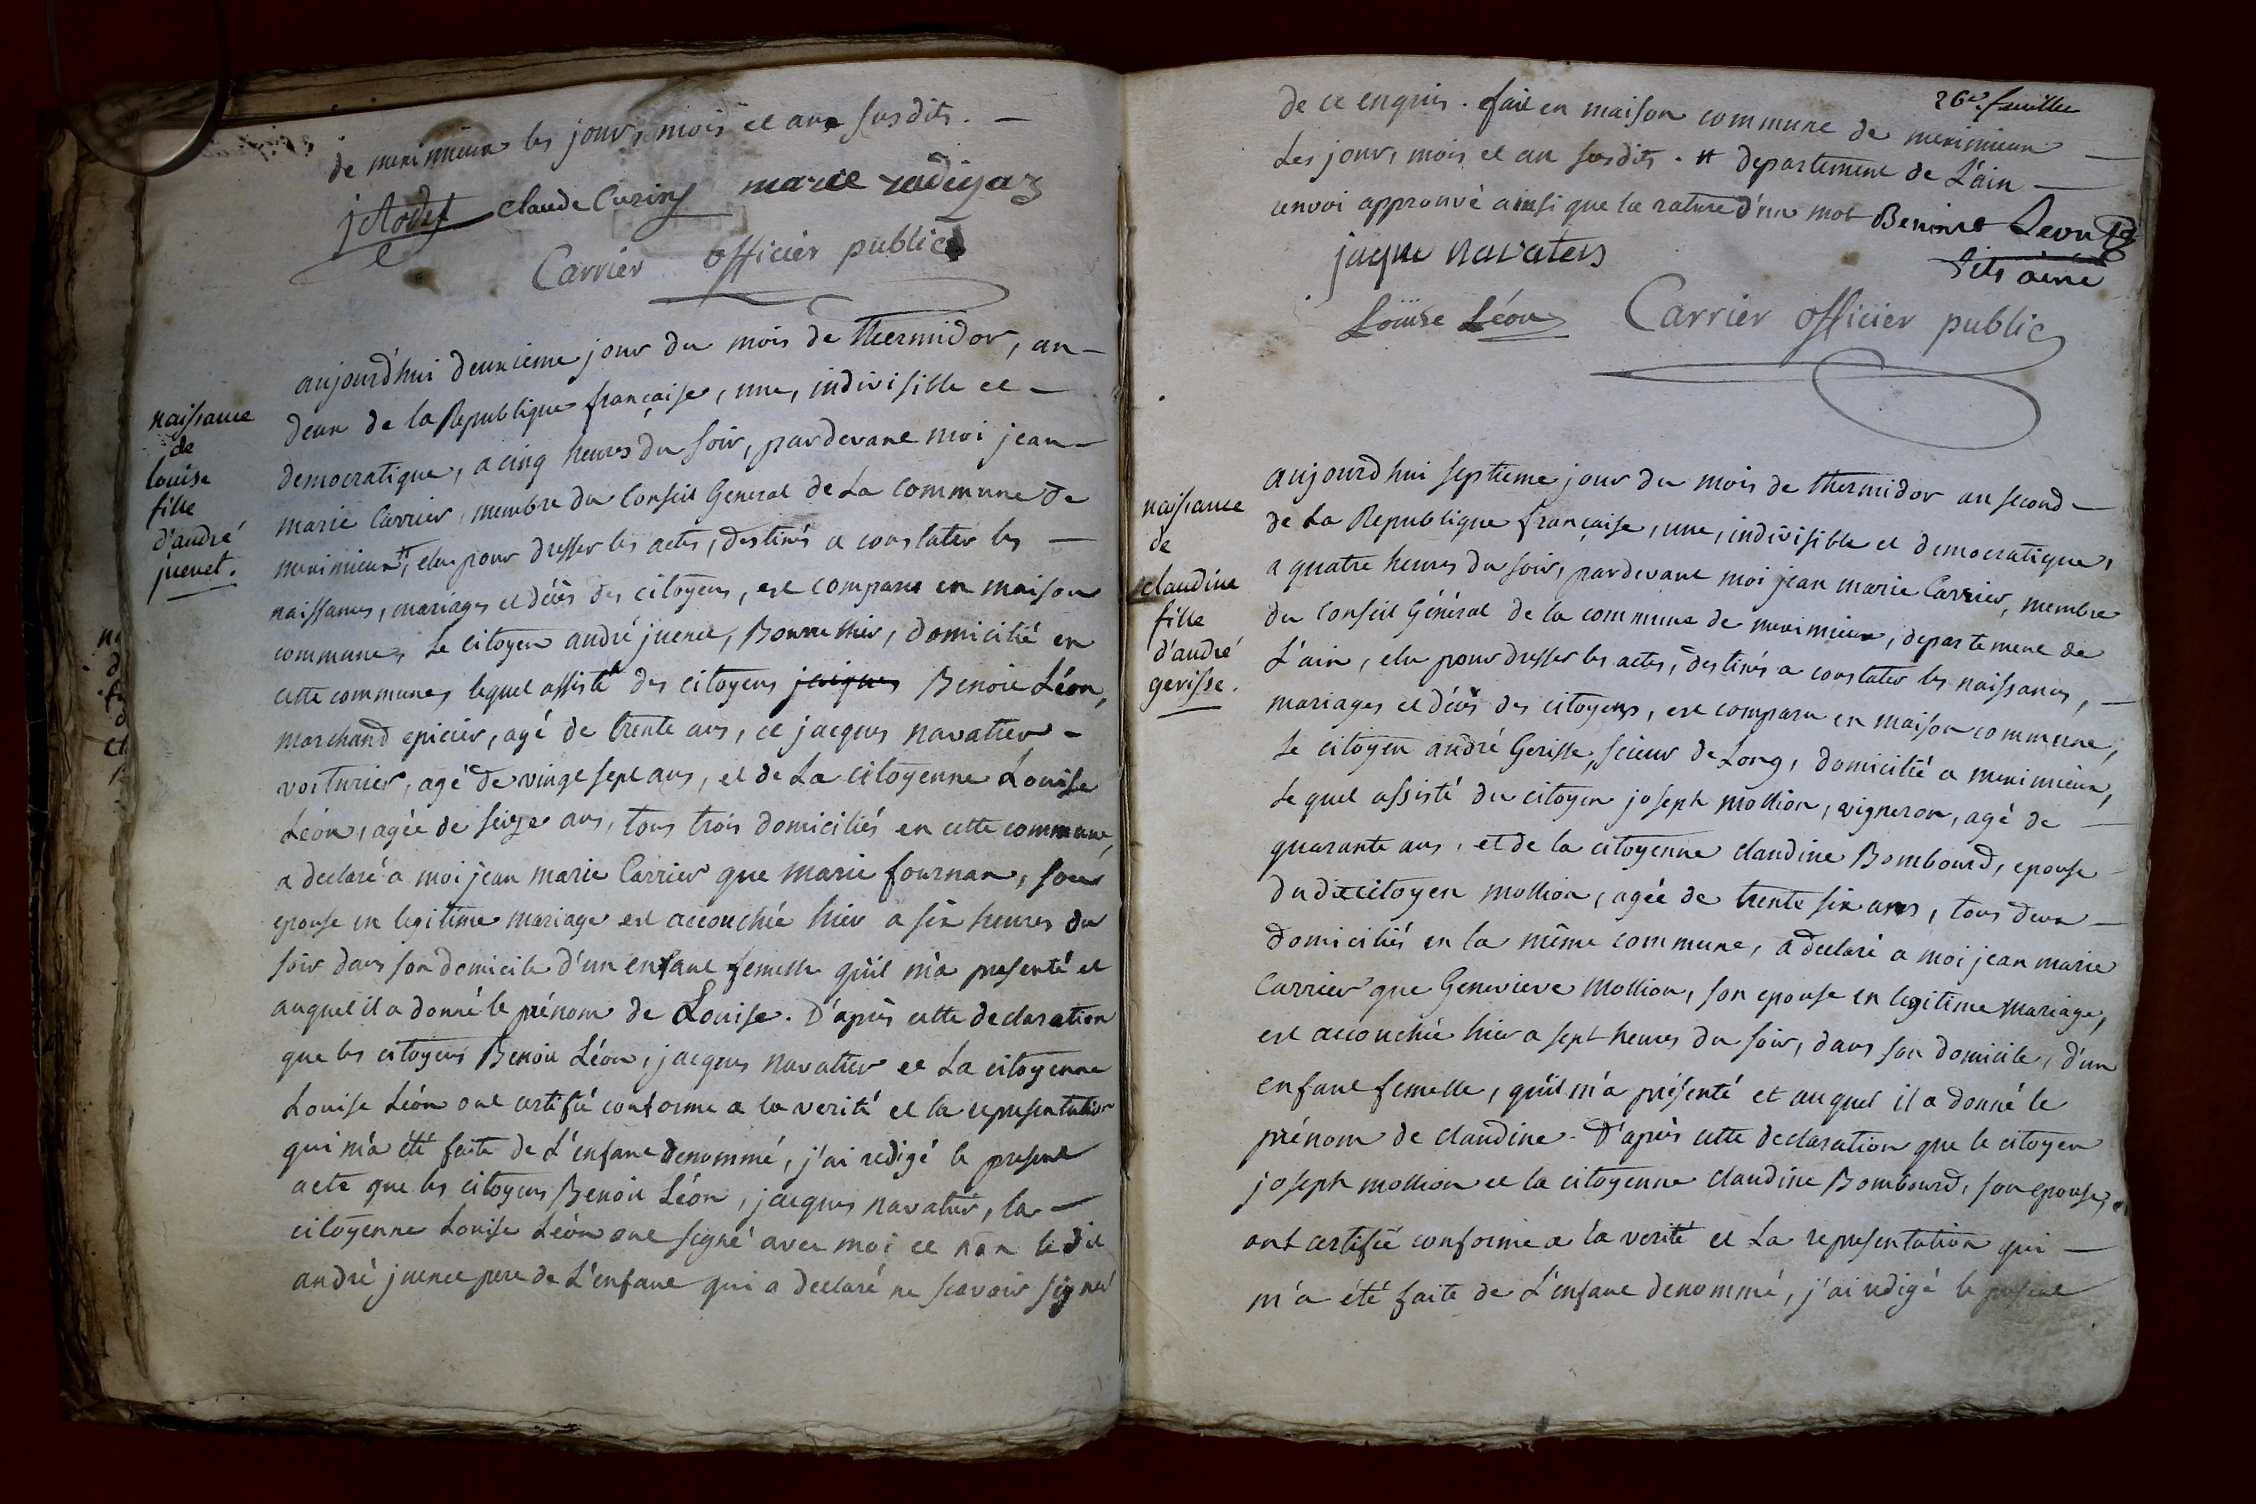 de meximieux les jours, mois et an susdits. —
claude Cusin marie radigaz
Carrier officier public
naissance
de
louise
fille
d'andré
juenet.
aujourd'hui deuxieme jour du mois de thermidor, an —
deux de la Republique française, une, indivisible et —
democratique, a cinq heures du soir, pardevant moi jean —
marie Carrier, membre du Conseil General de La commune de
meximieux #, elu pour dresser les actes, destinés a constater les —
naissances, mariages et décès des citoyens, est comparu en maison
commune, Le citoyen andré juenet, Bourrellier, domicilié en
cette commune, lequel assisté des citoyens jacques Benoit Léon,
marchand epicier, agé de trente ans, et jacques navatier —
voiturier, agé de vingt sept ans, et de La citoyenne Louise
Léon, agée de seize ans, tous trois domiciliés en cette commune,
a declaré a moi jean marie Carrier que marie fournan, son
epouse en legitime mariage est accouchée hier a six heures du
soir dans son domicile d'un enfant femelle qu'il m'a presenté et
auquel il a donné le prénom de Louise. D'après cette declaration
que les citoyens Benoit Léon, jacques navatier et La citoyenne
Louise Léon ont certifié conforme a la verité et la representation
qui m'a été faite de L'enfant denommé, j'ai redigé le present
acte que les citoyens Benoit Léon, jacques navatier, la —
citoyenne Louise Léon ont signé avec moi et non le dit
andré juenet pere de L'enfant qui a declaré ne scavoir signer
26e. feuillet
de ce enquis. fait en maison commune de meximieux —
Les jour, mois et an susdits. # departement de L'ain —
renvoi approuvé ainsi que la rature d'un mot Benoit Leon
fils ainé
jaque navatiers
Louise Léon Carrier officier public
naissance
de
claudine
fille
d'andré
gerisse.
aujourd'hui septieme jour du mois de thermidor an second —
de La Republique française, une, indivisible et democratique,
a quatre heures du soir, pardevant moi jean marie Carrier, membre
du Conseil Général de la commune de meximieux, departement de
L'ain, elu pour dresser les actes, destinés a constater les naissances, —
mariages et décès des citoyens, est comparu en maison commune,
Le citoyen andré Gerisse, scieur de Long, domicilié a meximieux,
Lequel assisté du citoyen joseph mollion, vigneron, agé de —
quarante ans, et de la citoyenne claudine Bombourd, epouse —
dudit citoyen mollion, agée de trente six ans, tous deux —
domiciliés en la même commune, a declaré a moi jean marie
Carrier que Genevieve mollion, son epouse en legitime mariage,
est accouchée hier a sept heures du soir, dans son domicile, d'un
enfant femelle, qu'il m'a présenté et auquel il a donné le
prénom de claudine. D'après cette declaration que le citoyen
joseph mollion et la citoyenne claudine Bombourd, son epouse,
ont certifié conforme a la verité et La representation qui —
m'a été faite de L'enfant denommé, j'ai redigé le present